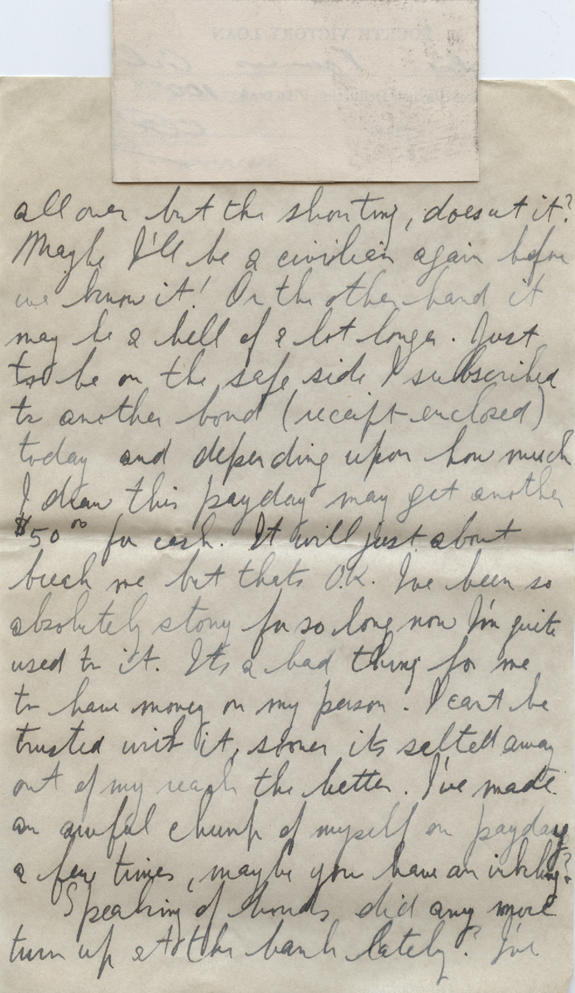 FOURTH VICTORY LOAN
all over but the shouting, doesnt it?
Maybe I'll be a civilian again before
we know it! On the other hand it
may be a hell of a lot longer. Just
to be on the safe side I subscribed
to another bond (receipt enclosed)
today and depending upon how much
I draw this payday may get another
$50 00 for cash. It will just about
break me but thats O.K. I've been so
absolutely stony for so long now I'm quite
used to it. Its a bad thing for me
to have money on my person. I cant be
trusted with it, sooner its salted away
out of my reach the better. I've made
an awful chump of myself on payday
a few times, maybe you have an inkling?
Speaking of bonds did any more
turn up at the bank lately? I've